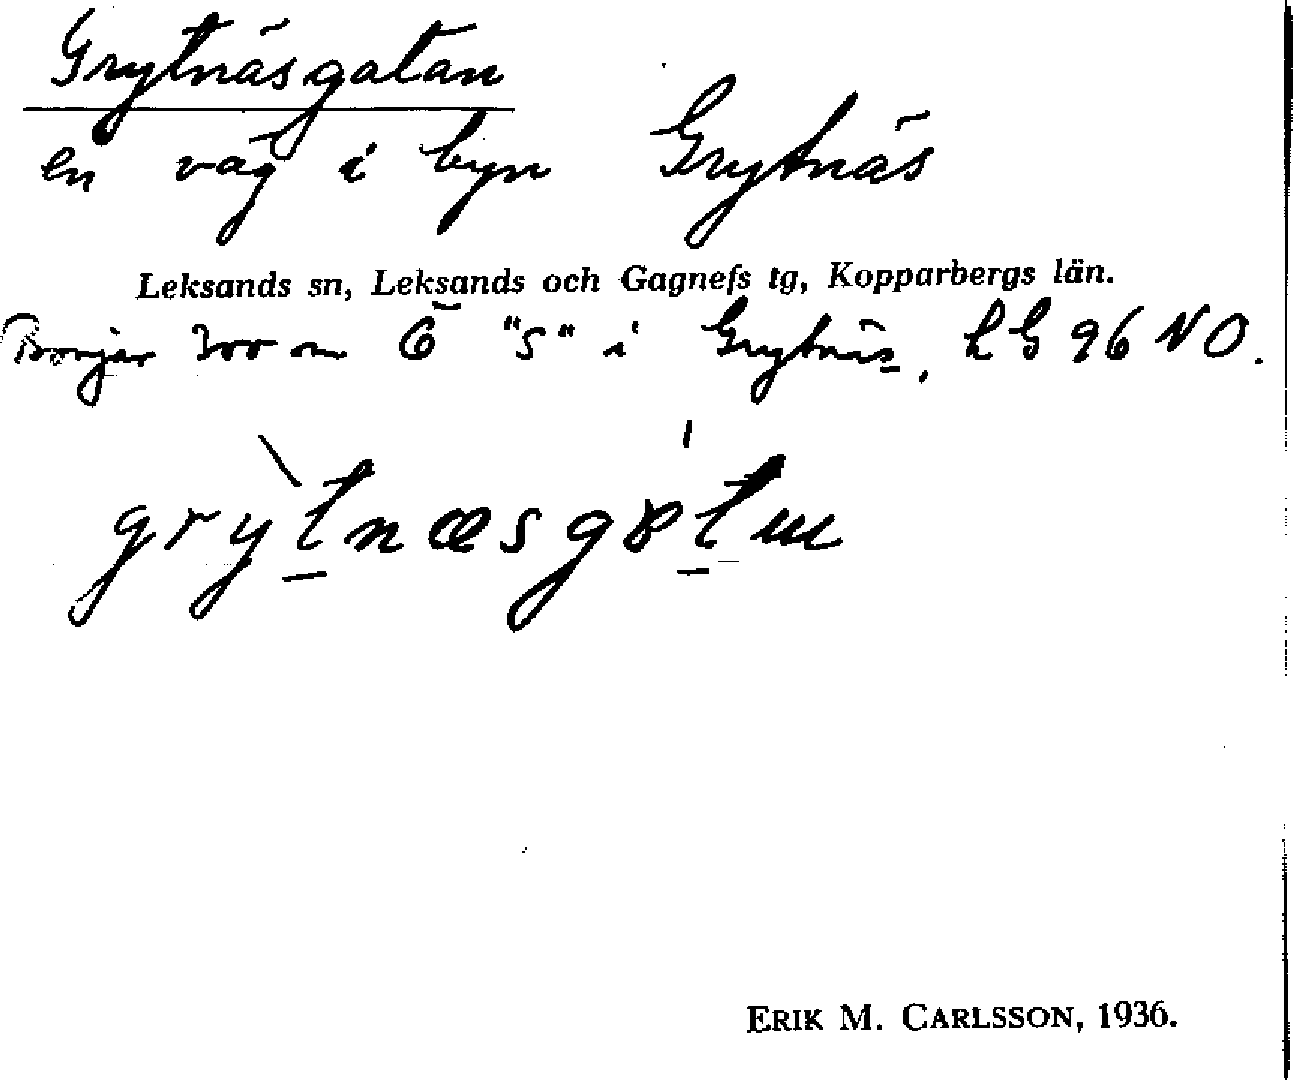 Grytnäsgatan
en väg i byn Grytnäs
Leksands sn, Leksands och Gagnefs tg, Kopparbergs län.
Börjar 300 m Ö "S" i Grytnäs, LG 96 NO.
grytnæsgøtm
ERIK M. CARLSSON, 1936.